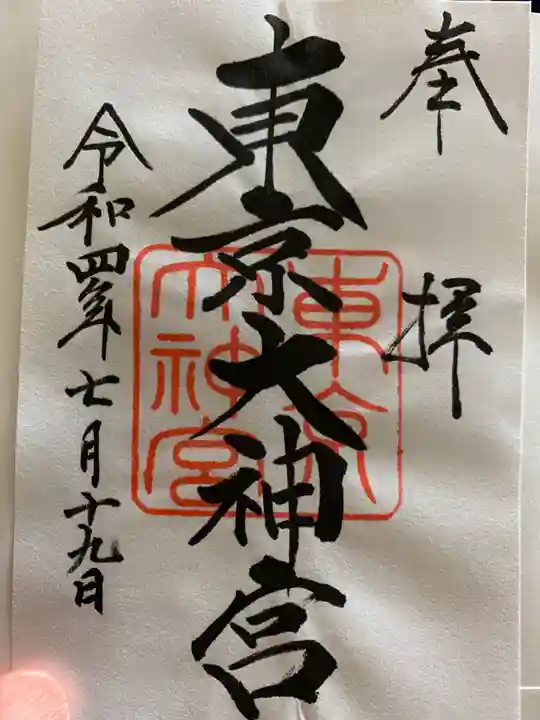 奉拝
東京大神宮
東京
大神宮
令和四年七月十九日